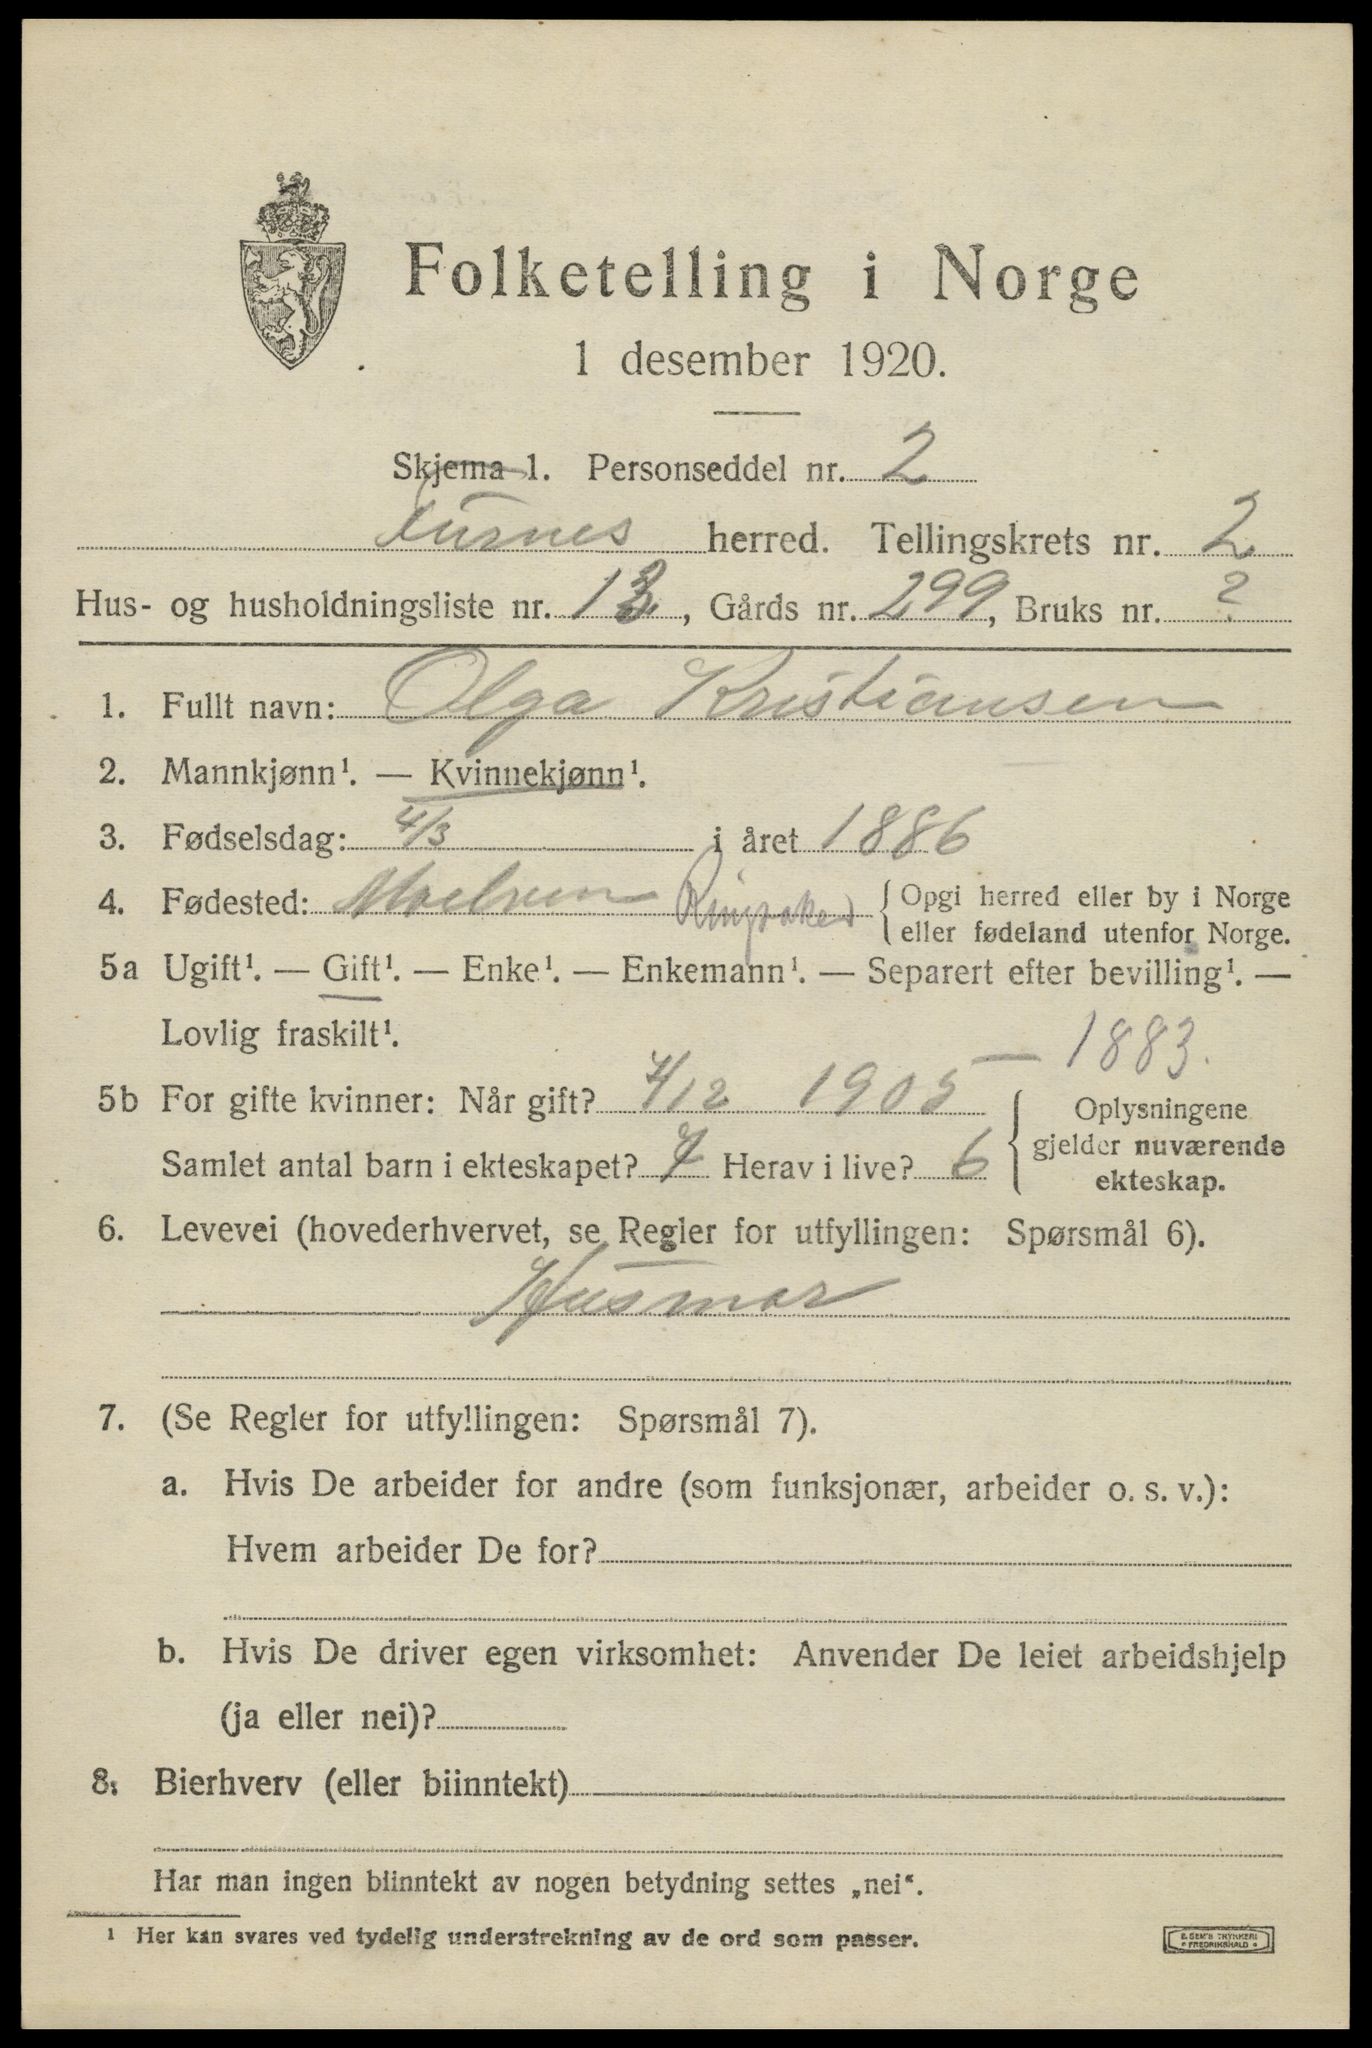 Folketelling i Norge
1 desember 1920.
Skjema 1. Personseddel nr. 2
Furnes herred. Tellingskrets nr. 2
Hus- og husholdningsliste nr. 13, Gårds nr. 299, Bruks nr. ?
1. Fullt navn: Olga Kristiansen
2. Mannkjønn¹. — Kvinnekjønn¹.
3. Fødselsdag: 4/3 i året 1886
4. Fødested: Moelven Ringsaker { Opgi herred eller by i Norge
eller fødeland utenfor Norge.
5a Ugift¹. — Gift¹. — Enke¹. — Enkemann¹. — Separert efter bevilling¹. —
Lovlig fraskilt¹.
— 1883.
5b For gifte kvinner: Når gift? 4/12 1905
Samlet antal barn i ekteskapet? 7 Herav i live? 6
Oplysningene
gjelder nuværende
ekteskap.
6. Levevei (hovederhvervet, se Regler for utfyllingen: Spørsmål 6).
Husmor
7. (Se Regler for utfyllingen: Spørsmål 7).
a. Hvis De arbeider for andre (som funksjonær, arbeider o. s. v.):
Hvem arbeider De for?
b. Hvis De driver egen virksomhet: Anvender De leiet arbeidshjelp
(ja eller nei)?
8. Bierhverv (eller biinntekt)
Har man ingen biinntekt av nogen betydning settes „nei“.
¹ Her kan svares ved tydelig understrekning av de ord som passer.
E. SEM'S TRYKKERI
• FREDRIKSHALD •